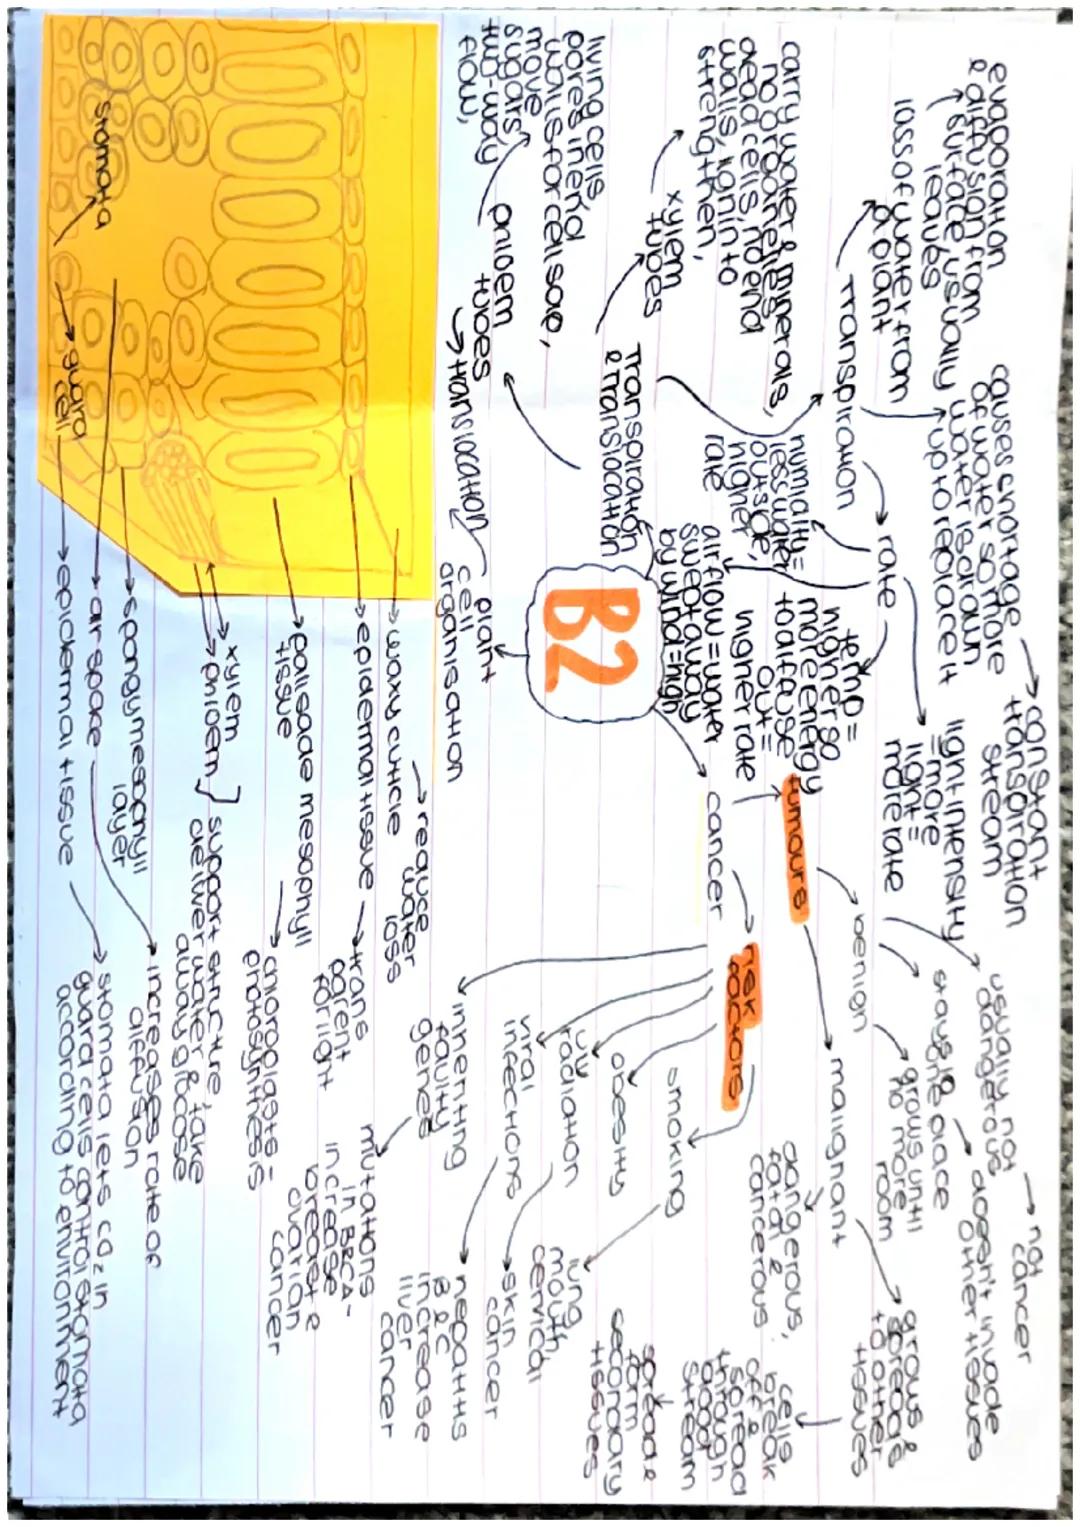 B2
Transpiration
& Translocation
Transpiration
loss of water from
a plant
evaporation
& diffusion from
surface usually
leaves
causes shortage
of water so more
water is drawn
up to replace it
constant
transpiration
stream
rate
light intensity
= more
light =
more rate
temp =
higher so
more energy
to diffuse
out =
higher rate
humidity =
less water
outside,
higher
rate
air flow = water
swept away
by wind = high
xylem
tubes
carry water & minerals,
no organelles,
dead cells, no end
walls, lignin to
strengthen,
phloem
tubes
living cells,
pores in end
walls for cell sap,
move
sugars,
two-way
flow,
translocation
plant
cell
organisation
waxy cuticle
reduce
water
loss
epidermal tissue
trans
parent
for light
palisade mesophyll
tissue
chloroplasts =
photosynthesis
xylem
phloem
support structure,
deliver water & take
away glucose
spongy mesophyll
layer
air space
increases rate of
diffusion
epidermal tissue
stomata lets co2 in
guard cells control stomata
according to environment
stomata
guard
cell
cancer
tumours
benign
usually not
dangerous
not
cancer
stays in
one place
doesn't invade
other tissues
grows until
no more
room
malignant
dangerous,
fatal &
cancerous
grows &
spreads
to other
tissues
cells
break
off &
spread
through
blood
stream
spread &
form
secondary
tissues
risk
factors
smoking
lung
mouth,
cervical
obesity
uv
radiation
skin
cancer
viral
infections
hepatitis
B & C
increase
liver
cancer
inheriting
faulty
genes
mutations
in BRCA-
increase
breast &
ovarian
cancer